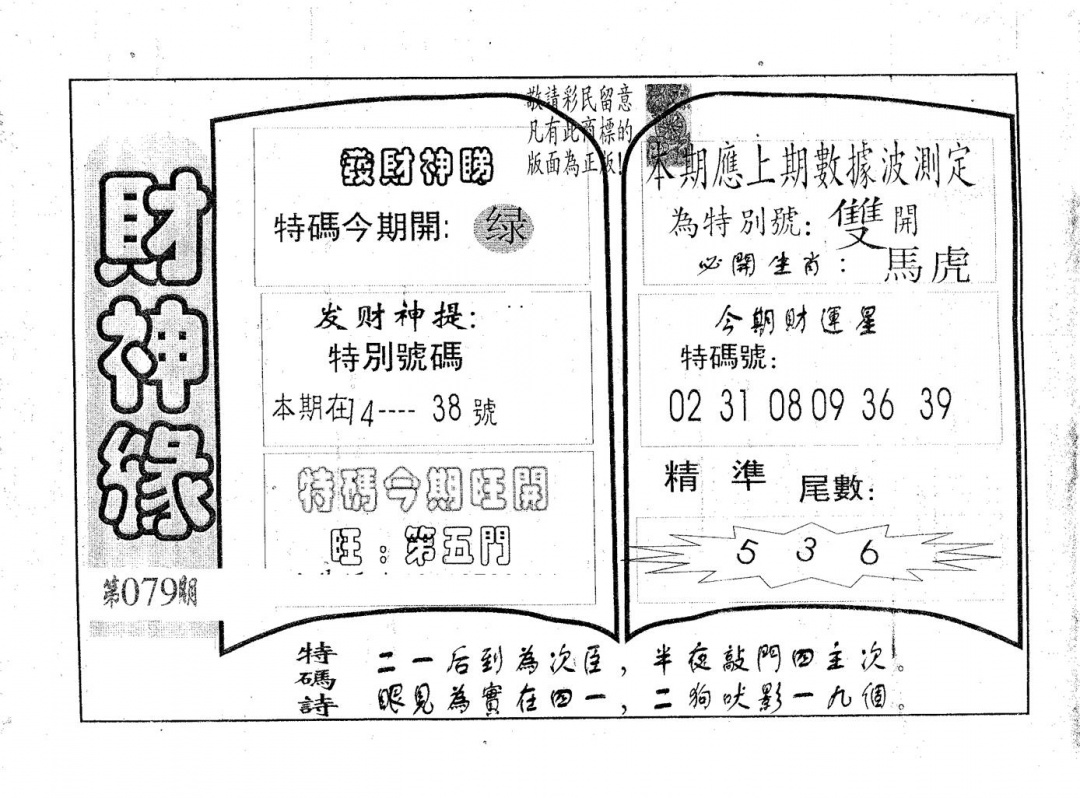 財神緣
第079期
敬請彩民留意
凡有此商標的
版面為正版!
發財神睇
特碼今期開: 绿
发财神提:
特別號碼
本期在14---- 38 號
特碼今期旺開
旺：第五門
本期應上期數據波測定
為特別號: 雙 開
必開生肖： 馬虎
今期財運星
特碼號:
02 31 08 09 36 39
精 準 尾數:
5 3 6
特碼詩
二一后到為次臣，半夜敲門四主次。
眼見為實在四一，二狗吠影一九個。